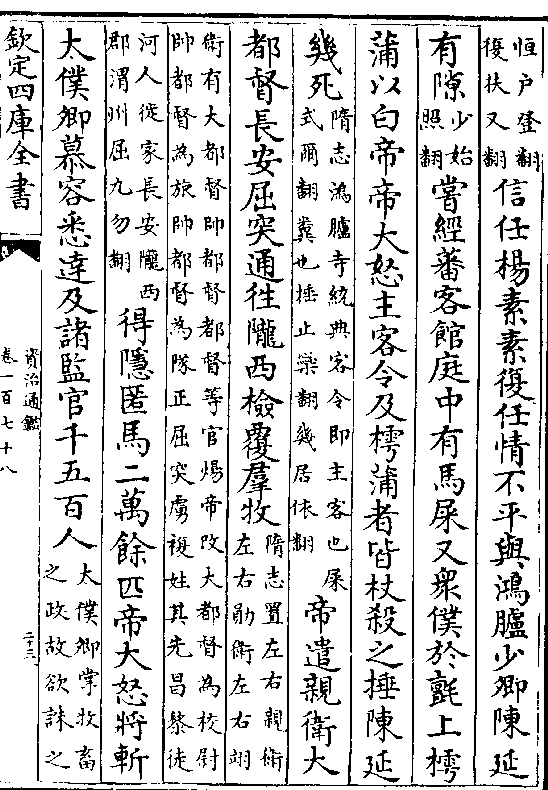 恒户登翻
復扶又翻
信任楊素素復任情不平與鴻臚少卿陳延
有隙
少始
照翻
嘗經蕃客館庭中有馬屎又衆僕於氊上樗
蒲以白帝帝大怒主客令及樗蒲者皆杖殺之捶陳延
幾死
隋志鴻臚寺統典客令即主客也屎
式爾翻糞也捶止橤翻幾居依翻
帝遣親衛大
都督長安屈突通往隴西檢覆羣牧
隋志置左右親衛
左右勛衛左右翊
衛有大都督帥都督都督等官煬帝改大都督為校尉
帥都督為旅帥都督為隊正屈突虜複姓其先昌黎徒
河人徙家長安隴西
郡渭州屈九勿翻
得隱匿馬二萬餘匹帝大怒將斬
太僕卿慕容悉達及諸監官千五百人
太僕卿掌牧畜
之政故欲誅之
欽定四庫全書
資治通鑑
卷一百七十八
二十三